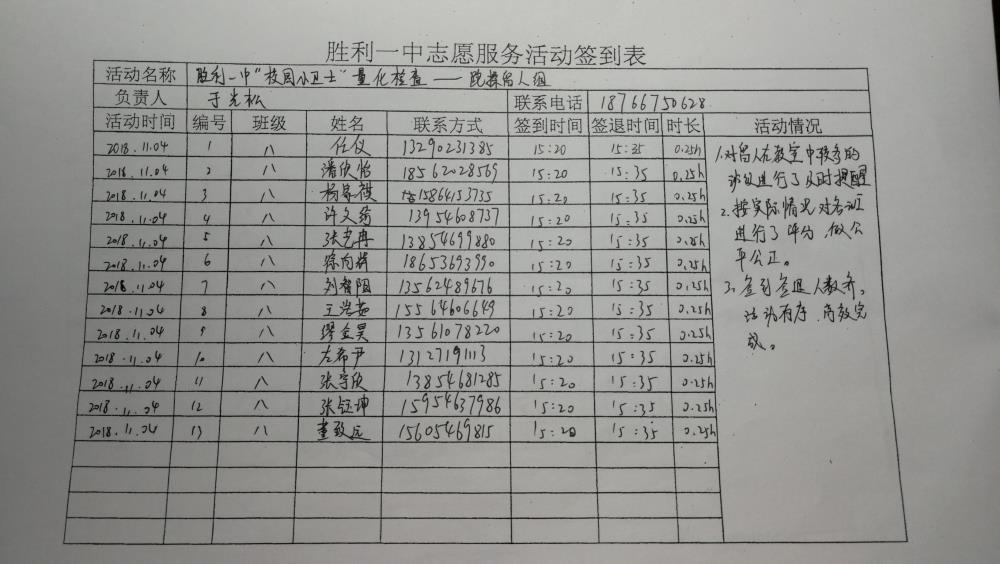 胜利一中志愿服务活动签到表
活动名称 胜利一中"校园小卫士"量化检查——跑操留人组
负责人 于光松 联系电话 18766750628
活动时间 编号 班级 姓名 联系方式 签到时间 签退时间 时长 活动情况
2018.11.04 1 八 任仪 13290231385 15:20 15:35 0.25h
2018.11.04 2 八 潘欣怡 18562028569 15:20 15:35 0.25h
2018.11.04 3 八 杨 15864153735 15:20 15:35 0.25h
2018.11.04 4 八 许文 13954608737 15:20 15:35 0.25h
2018.11.04 5 八 张 冉 13854699880 15:20 15:35 0.25h
2018.11.04 6 八 徐向 18653693990 15:20 15:35 0.25h
2018.11.04 7 八 刘智阳 13562489676 15:20 15:35 0.25h
2018.11.04 8 八 王 茹 15564606649 15:20 15:35 0.25h
2018.11.04 9 八 缪金昊 13561078220 15:20 15:35 0.25h
2018.11.04 10 八 左希尹 1312719113 15:20 15:35 0.25h
2018.11.04 11 八 张宇欣 13854681285 15:20 15:35 0.25h
2018.11.04 12 八 张钰坤 15954637986 15:20 15:35 0.25h
2018.11.04 13 八 董致远 15605469815 15:20 15:35 0.25h
1.对留人在教室中较多的
班级进行了及时提醒
2.按实际情况对各班
进行了评分,做公
平公正。
3.签到签退人数齐,
活动有序,高效完
成。